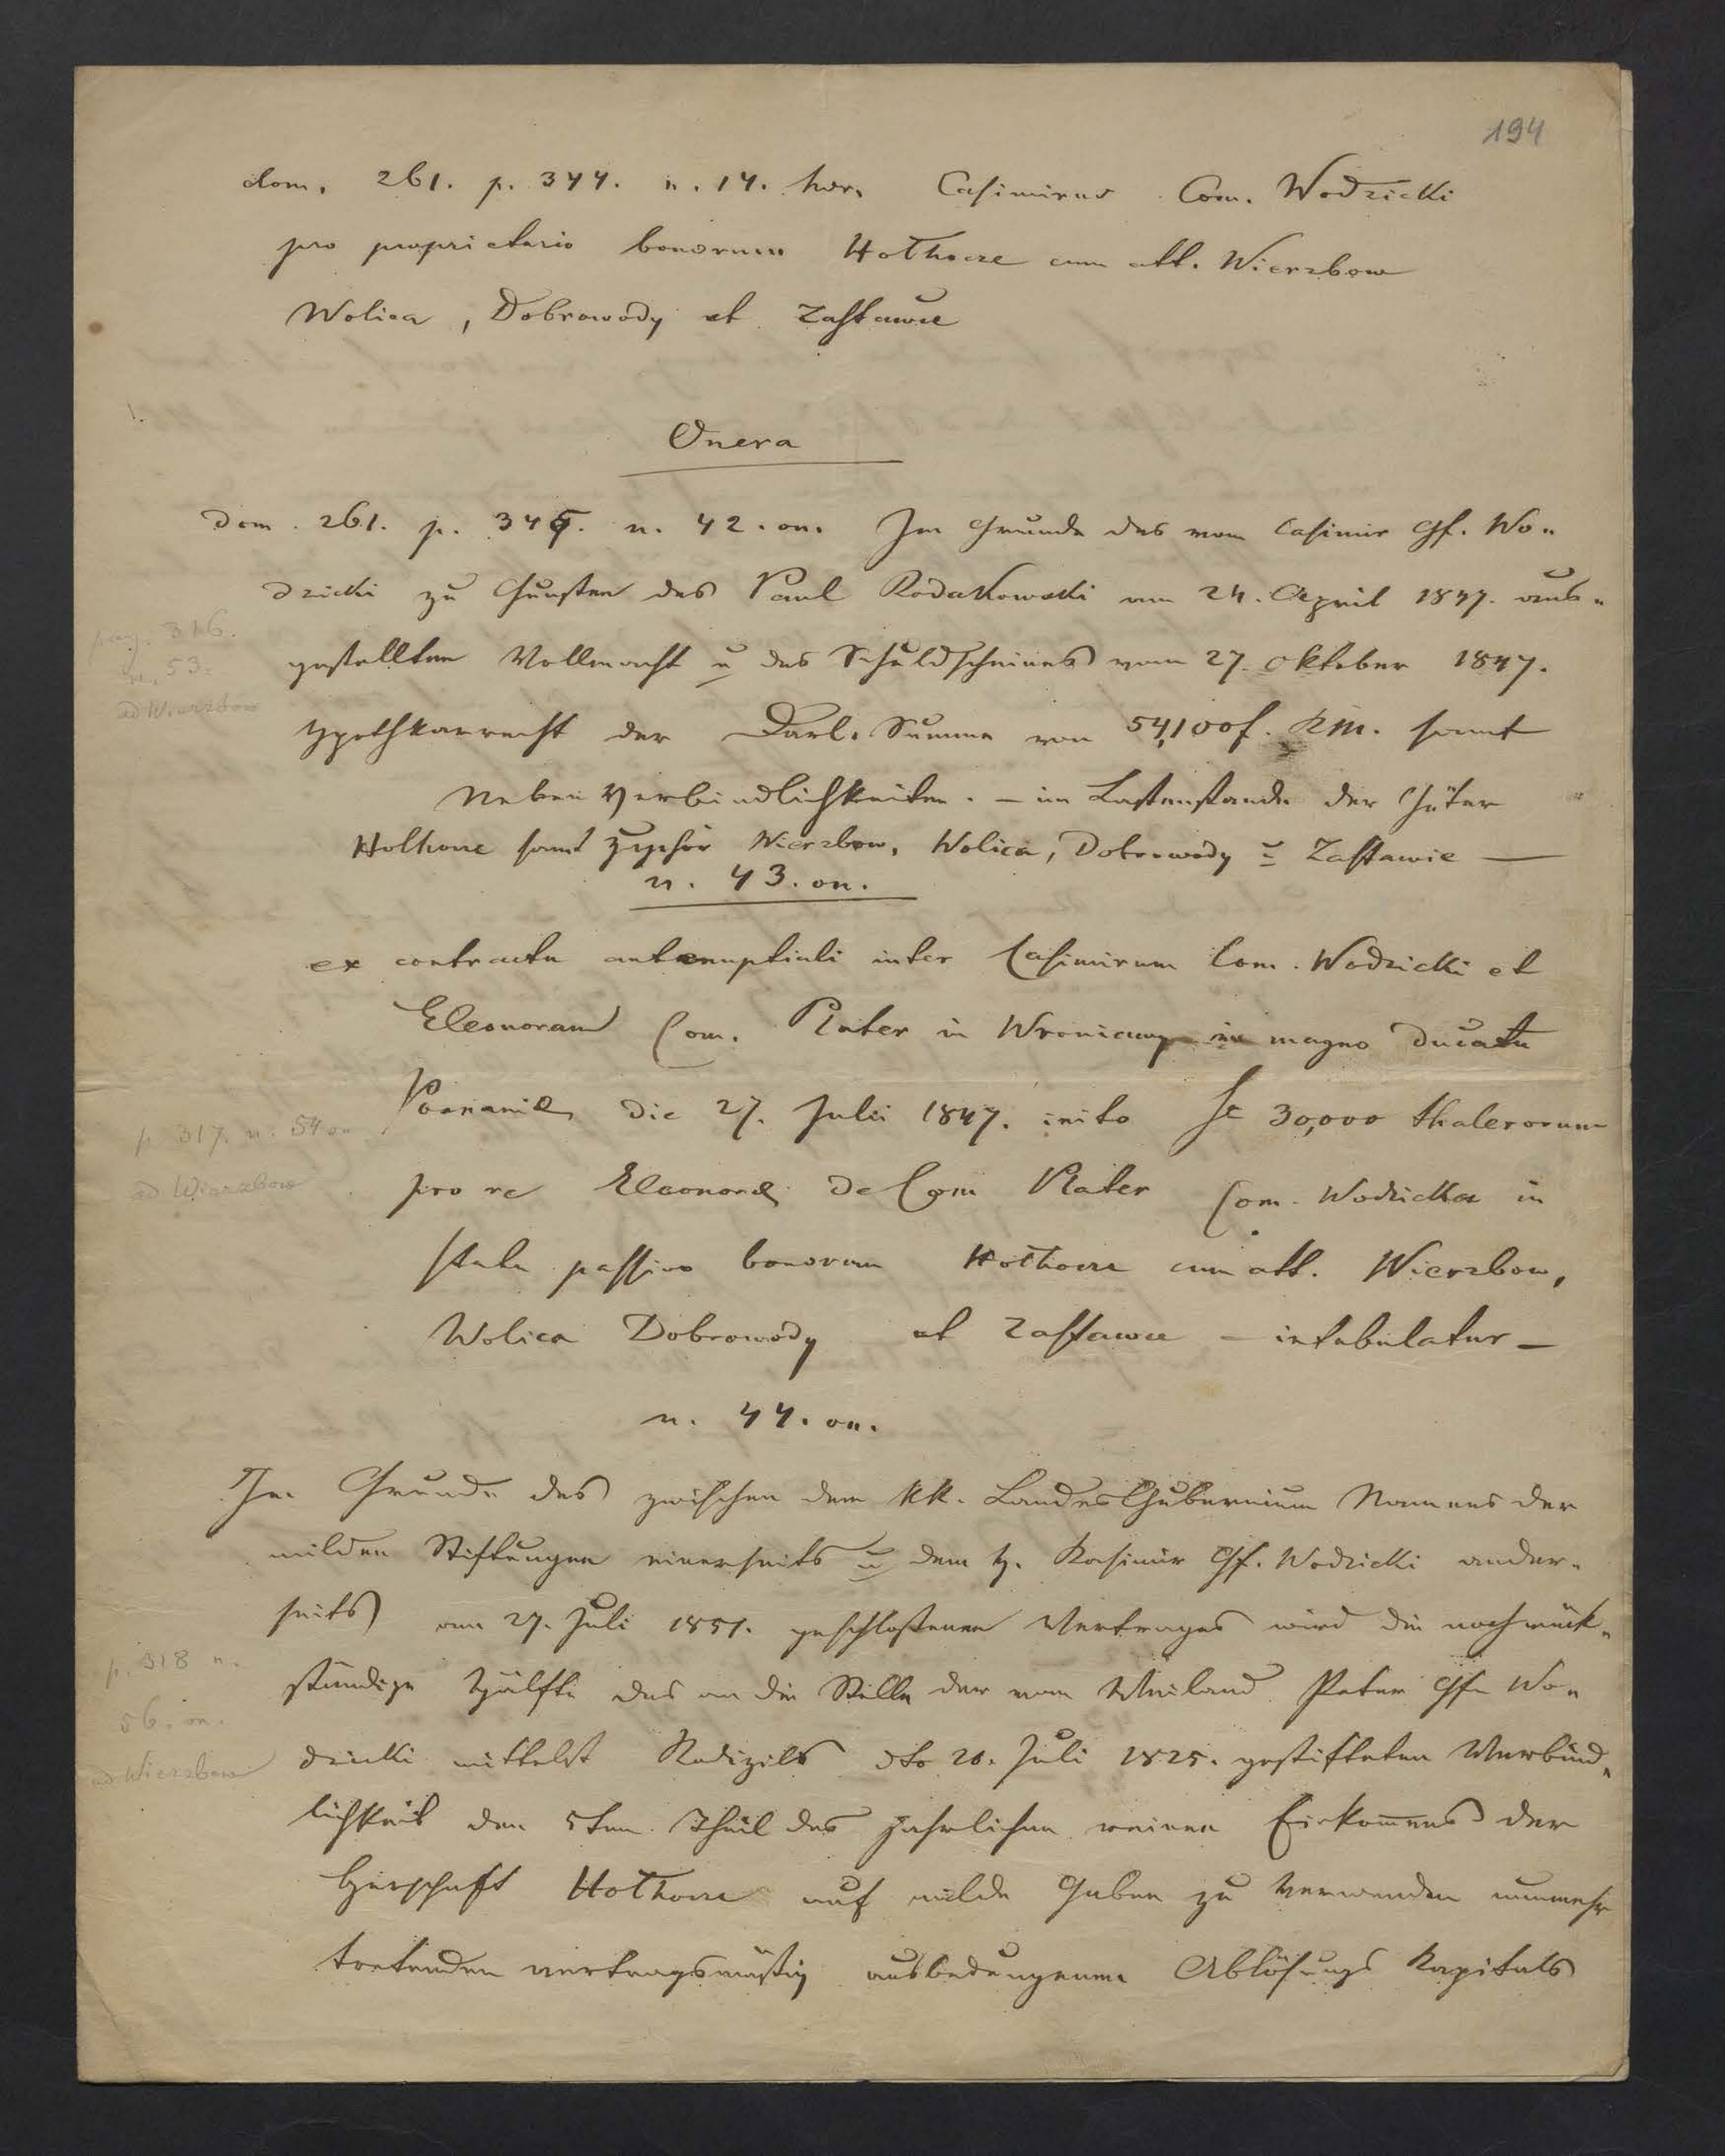 194
dom. 261. p. 344. n. 14. hær. Casimirus Com. Wodzicki
pro proprietario bonorum Hołhocze cum att. Wierzbow
Wolica, Dobrowody et Zastawce
Onera
dom. 261. p. 345. n. 42. on. Im Grunde des vom Casimir Gf. Wo-
dzicki zu Gunsten des Paul Rodakowski am 24. April 1847. aus-
pag. 316.
gestellten Vollmacht u des Schuldscheines vom 27. Oktober 1847.
n. 53.
ad Wierzbow
Hypothkarrecht der Darl. Summe von 54,100 f. KM. sammt
Neben Verbindlichkeiten. – im Lastenstande der Güter
Hołhocze samt Zugehör Wierzbow, Wolica, Dobrowody u Zastawie —
n. 43. on.
ex contractu antenuptiali inter Casimirum Com. Wodzicki et
Eleonoram Com. Plater in Wroniawy in magno Ducatu
Posnaniæ die 27. Julii 1847. inito Se 30,000 thalerorum
p 317. n. 54 on
ad Wierzbow
pro re Eleonoræ de Com Plater Com. Wodzicka in
statu passivo bonorum Hołhocze cum att. Wierzbow,
Wolica Dobrowody et Zastawce – intabulatur –
n. 44. on.
Im Grunde des zwischen dem kk. Landes Gubernium Namens der
milden Stiftungen einerseits u dem H. Kasimir Gf. Wodzicki ander-
seits am 27. Juli 1851. geschloßenen Vertrages wird die noch rück-
p. 318 n.
ständige Hälfte des an die Stelle der vom Weiland Peter Gfn Wo-
56. on.
ad Wierzbow
dzicki mittelst Kodizils dto 20. Juli 1825. gestifteten Verbind-
lichkeit den 5ten Theil des jährlichen reinen Einkommens der
Herschaft Hołhocze auf milde Gaben zu verwenden nunmehr
tretenden vertragsmäßig ausbedungenen Ablösungs Kapitals